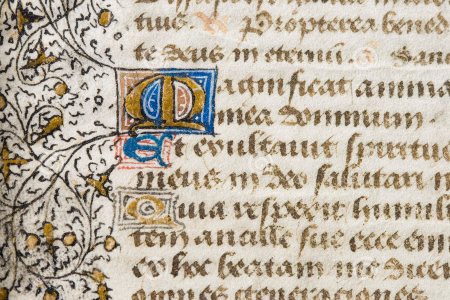 tuus. Propterea bened
te deus in eternum. Sanc
Magnificat anima
mea dominum.
Et exultavit spiritus
meus in deo salutari m
Quia respexit humili
tem ancille sue ecce enim
ex hoc beatam me dicen
omnes generationes